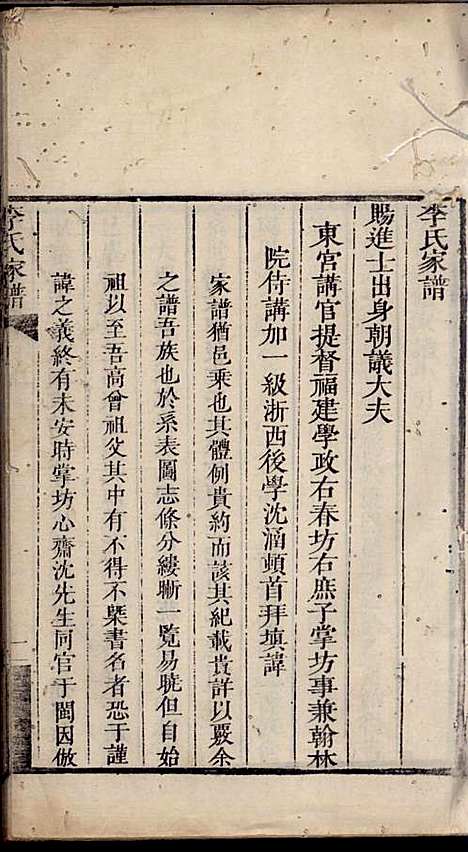 李氏家譜
賜進士出身朝議大夫
東宮講官提督福建學政右春坊右庶子掌坊事兼翰林
院侍講加一級浙西後學沈涵頓首拜填諱
家譜猶邑乘也其體例貴約而該其紀載貴詳以覈余
之譜吾族也於系表圖志條分縷晰一覧易曉但自始
祖以至吾高曾祖父其中有不得不槩書名者恐于謹
諱之義終有未安時掌坊心齋沈先生同官于閩因倣
李氏家譜